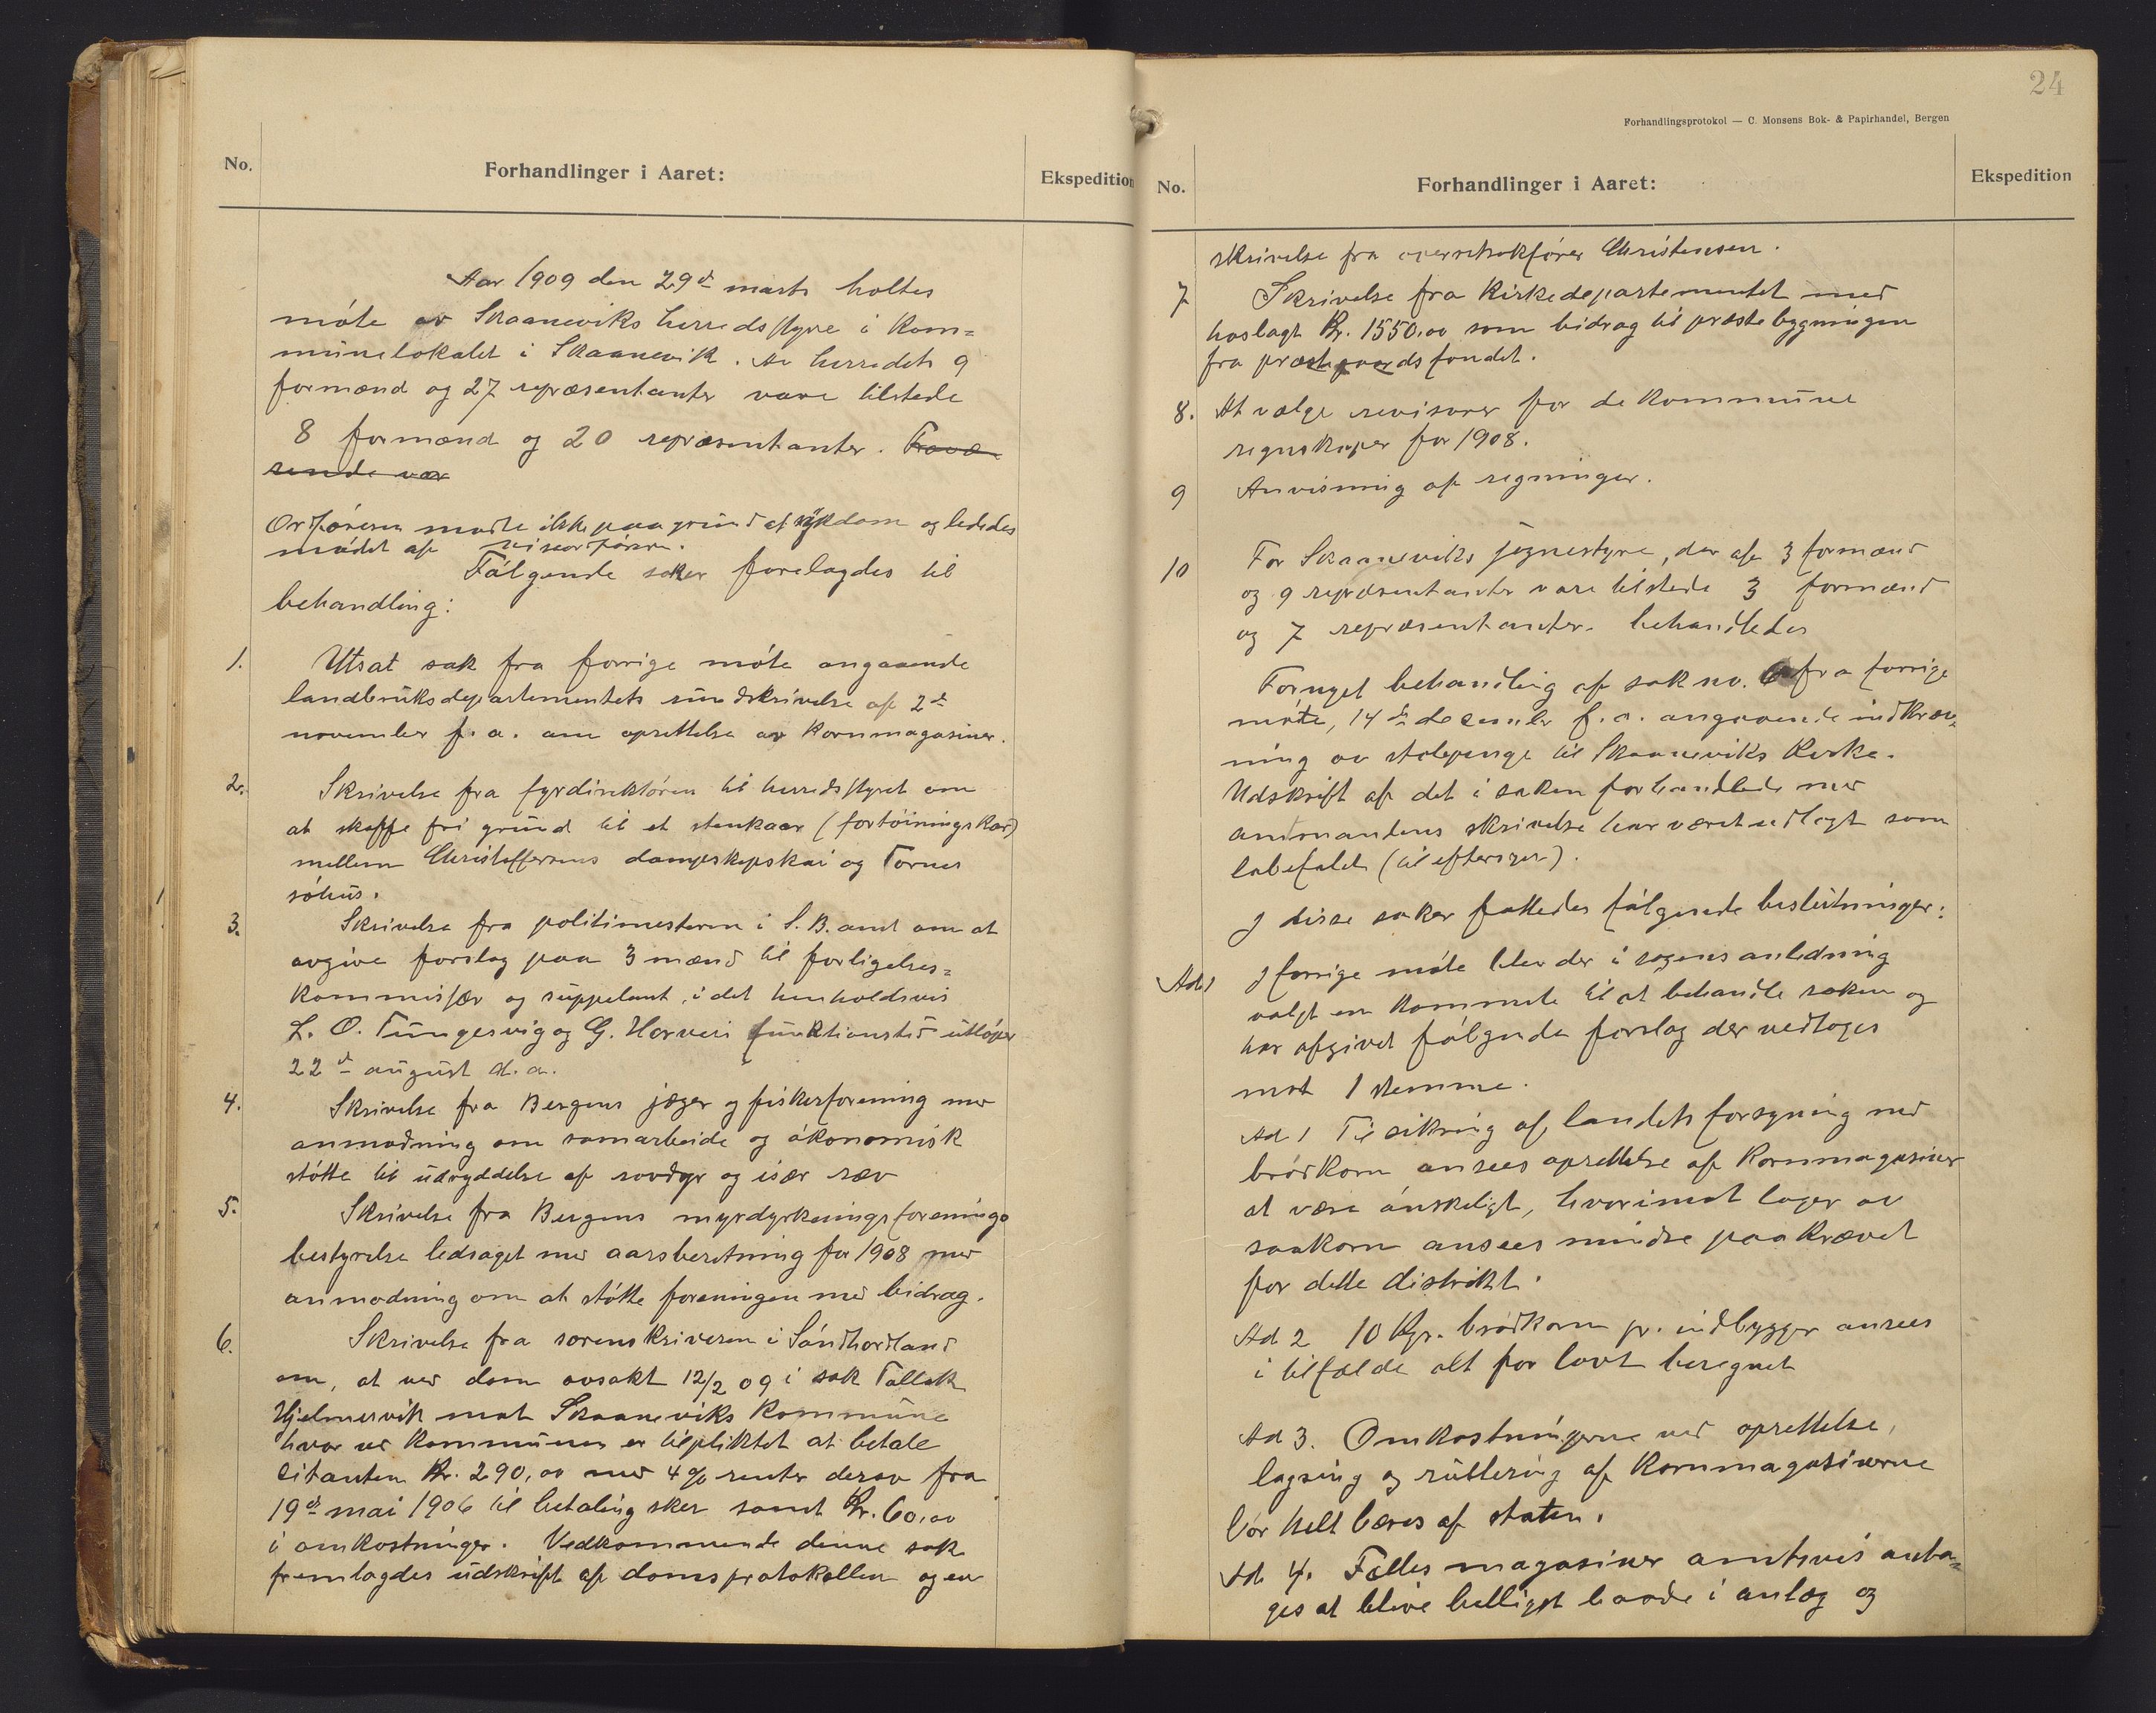 No.
Forhandlinger i Aaret:
Ekspedition
Aar 1909 den 29de marts holtes
møte av Skaaneviks herredsstyre i kom=
munelokalet i Skaanevik. Av herredets 9
formænd og 27 repræsentanter vare tilstede
8 formænd og 20 repræsentanter. Fravæ
rende var
Ordføreren mødte ikke paa grund af sykdom og lededes
mødet af viseordføreren.
Følgende saker forelagdes til
behandling:
1. Utsat sak fra forrige møte angaaende
landbruksdepartementets rundskrivelse af 2de
november f. a. om oprettelse av kornmagasiner.
2. Skrivelse fra fyrdirektøren til herredsstyret om
at skaffe fri grund til et stenkaar (fortøiningskar)
mellem Christoffersens dampskipskai og Tornes
søhus.
3. Skrivelse fra politimesteren i S. B. amt om at
avgive forslag paa 3 mænd til forligelses=
kommissær og suppelant, i det henholdsvis
L. O. Tungesvig og G. Horveis funktionstid utløper
22de august d. a.
4. Skrivelse fra Bergens jæger og fiskerforening med
anmodning om samarbeide og økonomisk
støtte til udryddelse af rovdyr og især ræv
5. Skrivelse fra Bergens myrdyrkningsforenings
bestyrelse ledsaget med aarsberetning for 1908 med
anmodning om at støtte foreningen med bidrag.
6. Skrivelse fra sorenskriveren i Søndhordland
om, at ved dom avsakt 12/2 09 i sak Tollak
Hjelmervik mot Skaaneviks kommune
hvor ved kommunen er tilpliktet at betale
citanten Kr. 290,00 med 4% renter derav fra
19de mai 1906 til betaling sker samt Kr. 60,00
i omkostninger. Vedkommende denne sak
fremlagdes udskrift af domsprotokollen og en
24
Forhandlingsprotokol — C. Monsens Bok- & Papirhandel, Bergen
No.
Forhandlinger i Aaret:
Ekspedition
skrivelse fra overretsakfører Christensen.
7 Skrivelse fra Kirkedepartementet med
hoslagt Kr. 1550,00 som bidrag til præstebygningen
fra præstegaardsfondet.
8. At vælge revisorer for de kommune
regnskaper for 1908.
9 Anvisning af regninger.
10 For Skaaneviks sognestyre, der af 3 formænd
og 9 repræsentanter vare tilstede 3 formænd
og 7 repræsentanter. behandledes
Fornyet behandling af sak no. 6 fra forrige
møte, 14de december f. a. angaaende indkræv=
ning av stolepenge til Skaaneviks kirke.
Udskrift af det i saken forhandlede med
amtmandens skrivelse har været udlagt som
(til eftersyn).
I disse saker fattedes følgende beslutninger:
Ad 1 I forrige møte blev der i sagens anledning
valgt en kommite til at behandle saken og
har afgivet følgende forslag der vedtoges
mot 1 stemme.
Ad 1 Til sikring af landets forsyning med
brødkorn ansees oprettelse af kornmagasiner
at være ønskeligt, hvorimot lager av
saakorn ansees mindre paakrævet
for dette distrikt.
Ad 2 10 Kgr. brødkorn pr. indbygger ansees
i tilfælde alt for lavt beregnet
Ad 3. Omkostningerne ved oprettelse,
lagring og rullering af kornmagasinerne
bør helt bæres af staten.
Ad 4. Fælles magasiner amtsvis anta=
ges at blive billigst baade i anlæg og